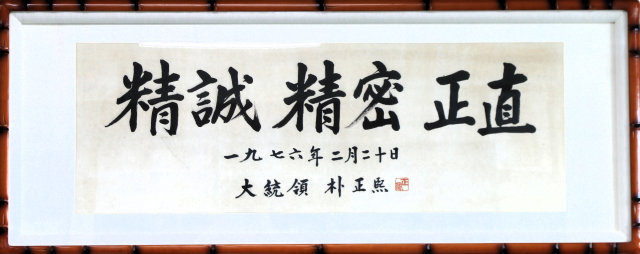 精誠 精密 正直
一九七六年 二月二十日
大統領 朴正熙